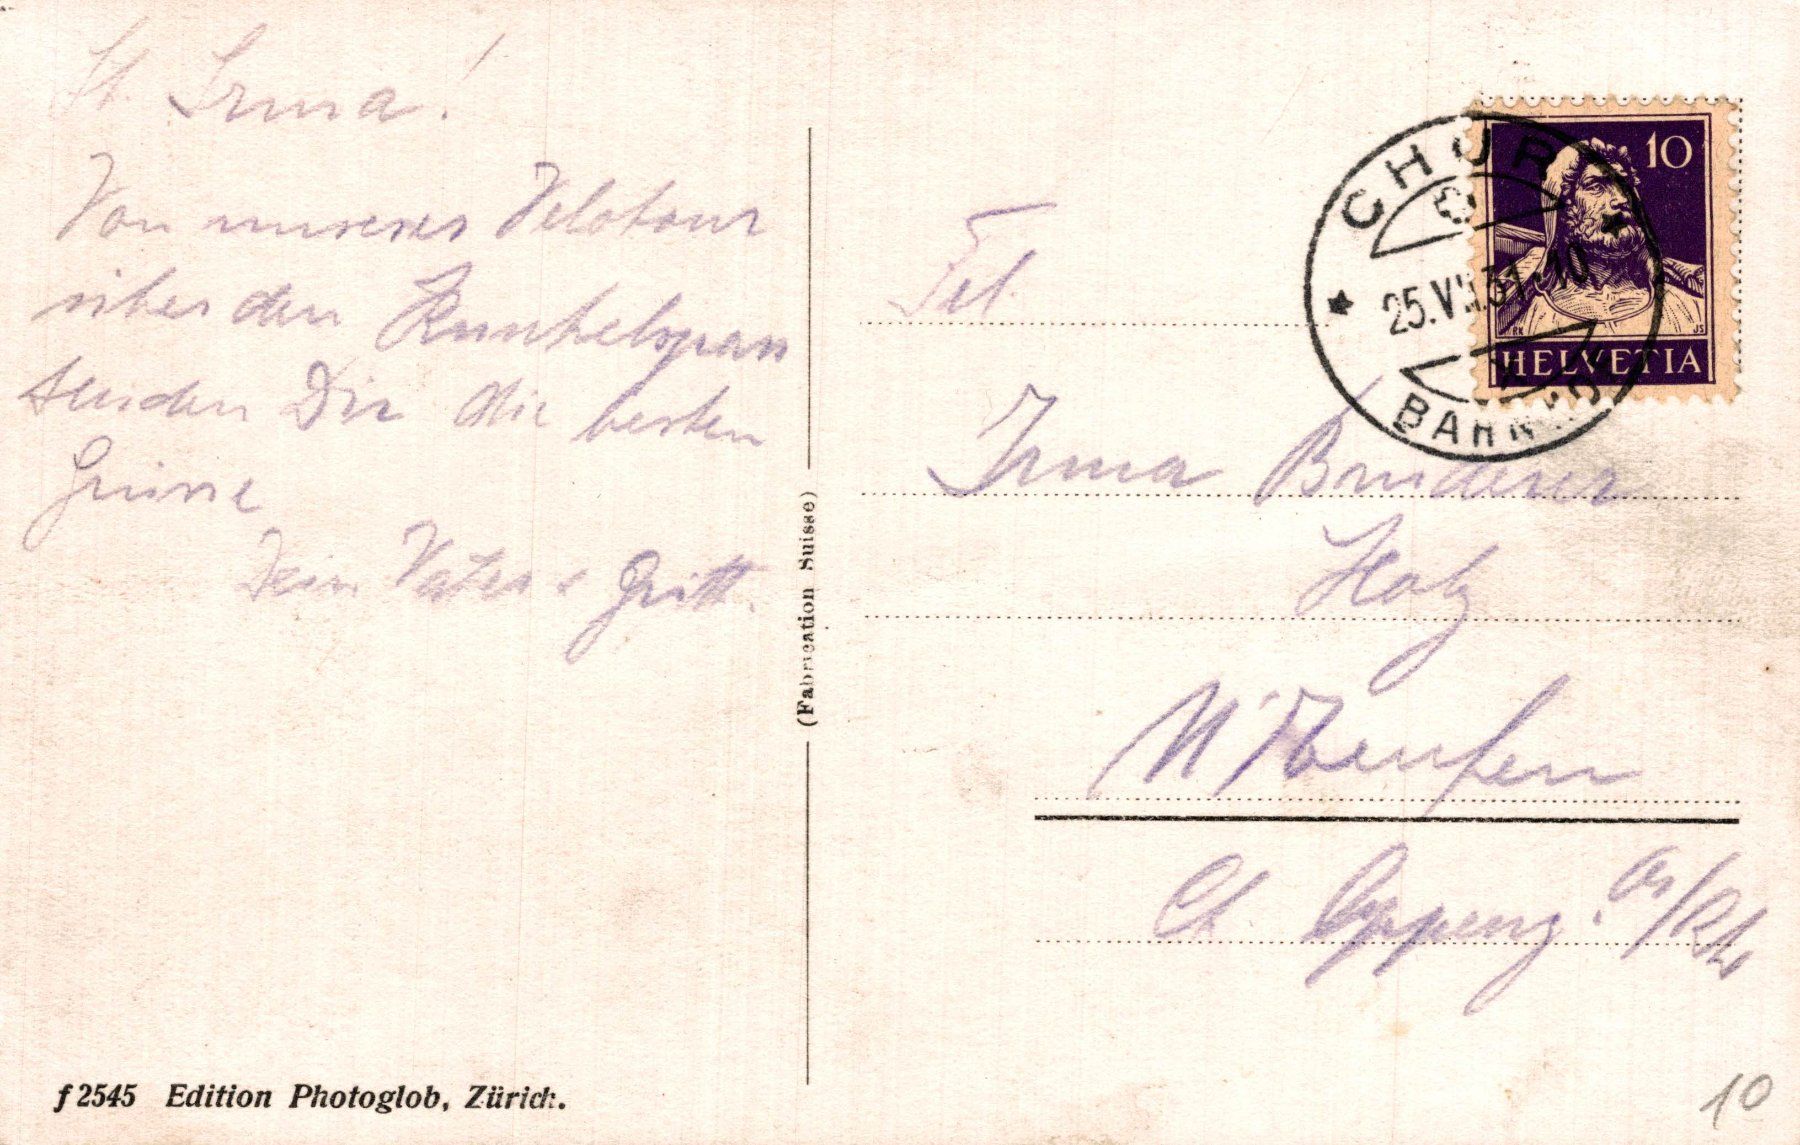 Irma!
Von unserer Velotour
über den Kunkelspass
senden Dir die besten
Grüsse
Dein Vater & Gritt.
(Fabrication Suisse)
f 2545 Edition Photoglob, Zürich.
CHUR
25.VII.31. 10
BAHNHOF
10
RK JS
HELVETIA
Frl.
Irma Bruderer
Holz
N'Teufen
Ct. Appenz. A/Rh.
10